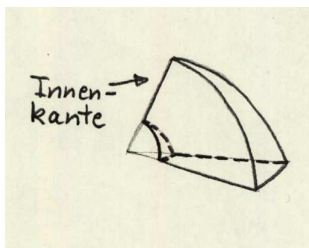 Innen-
kante